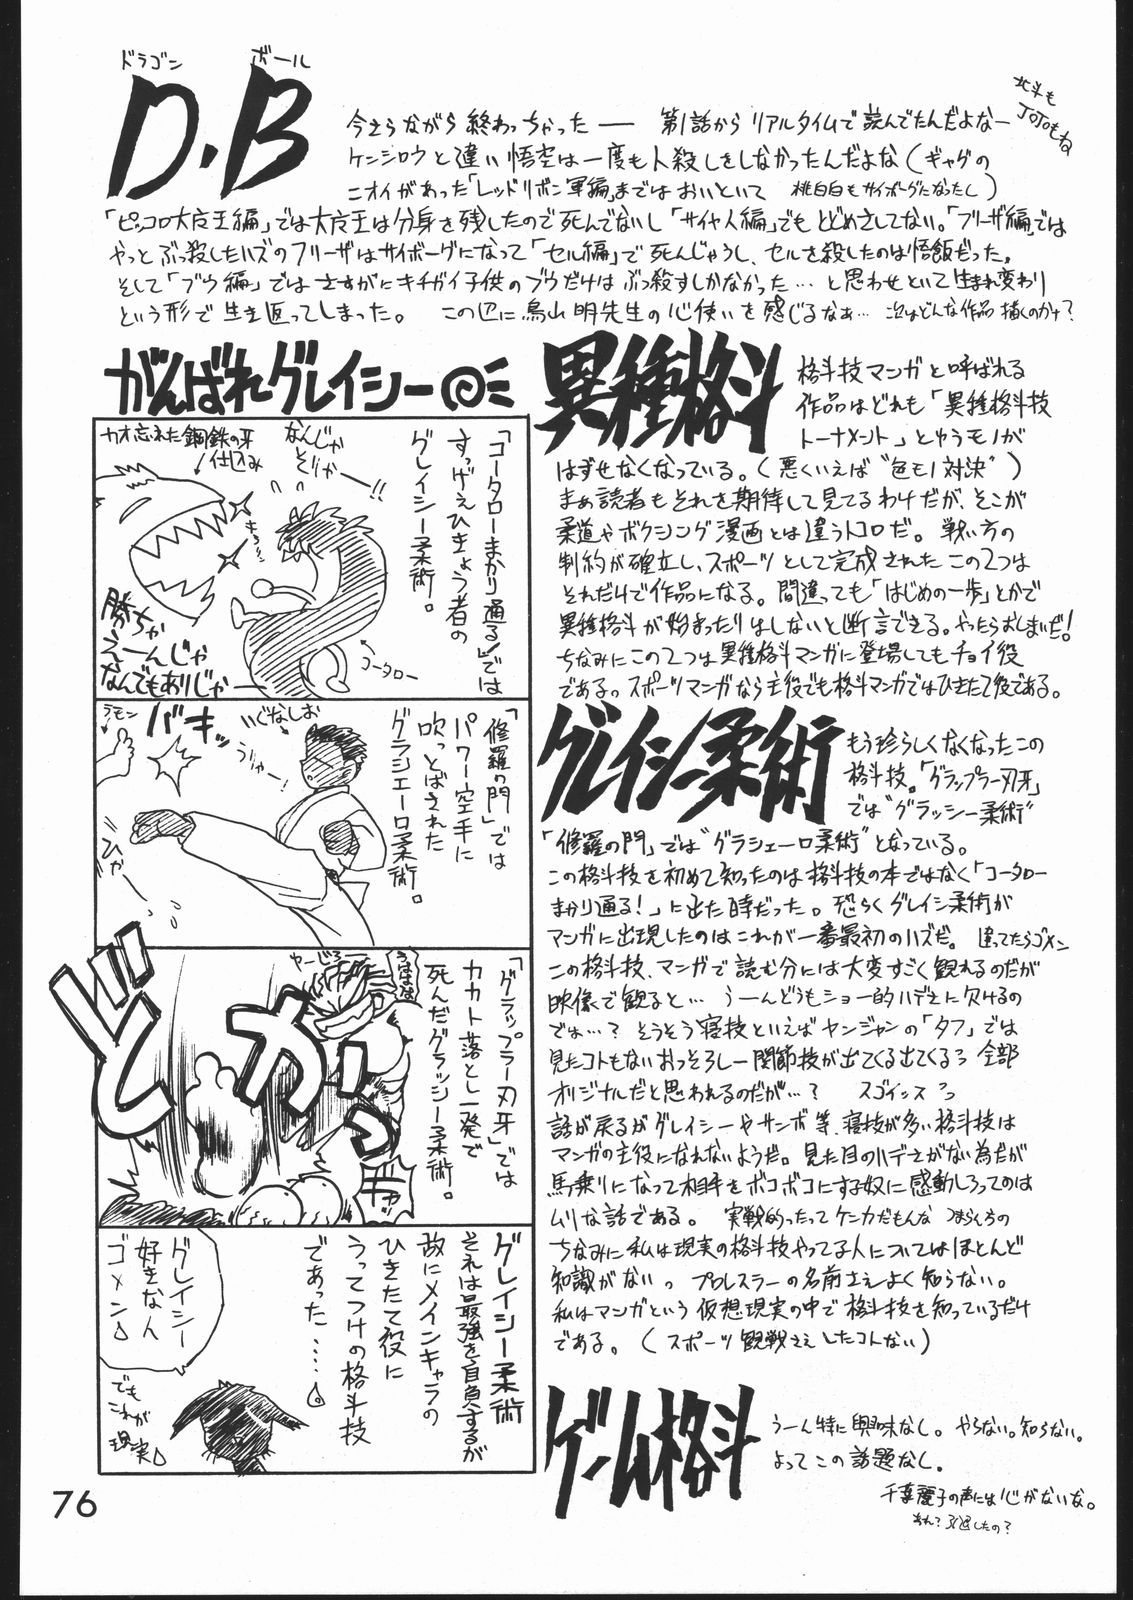 ドラゴン ボール
D.B
北斗も
JOJOもね
今さらながら終わっちゃったー 第1話からリアルタイムで読んでたんだよなー
ケンシロウと違い悟空は一度も人殺しをしなかったんだよな(ギャグの
ニオイがあった「レッドリボン軍編」まではおいといて 桃白白もサイボーグになったし)
「ピッコロ大魔王編」では大魔王は分身を残したので死んでないし「サイヤ人編」でもとどめさしてない。「フリーザ編」では
やっとぶっ殺したハズのフリーザはサイボーグになって「セル編」で死んじゃうし、セルを殺したのは悟飯だった。
そして「ブウ編」ではさすがにキチガイ子供のブウだけはぶっ殺すしかなかった…と思わせといて生まれ変わり
という形で生き返ってしまった。 この辺に鳥山明先生の心使いを感じるなぁ… 次はどんな作品描くのかナ?
がんばれグレイシー
「コータローまかり通る!」では
すっげえひきょう者の
グレイシー柔術。
カオ忘れた鋼鉄の牙
仕込み
なんじゃ
そりゃー!!
キラーン
勝ちゃ
えーんじゃ
なんでもありじゃー
コータロー
「修羅の門」では
パワー空手に
吹っとばされた
グラシエーロ柔術。
ラモン
バキッ
いぐなしお
うりゃー!
ひゃー
「グラップラー刃牙」では
カカト落とし一発で
死んだグラッシー柔術。
どかっ
グレイシー柔術
それは最強を自負するが
故にメインキャラの
ひきたて役に
うってつけの格斗技
であった……
グレイシー
好きな人
ゴメン
でも
これが
現実
異種格斗
格斗技マンガと呼ばれる
作品はどれも「異種格斗技
トーナメント」とゆうモノが
はずせなくなっている。(悪くいえば“色モノ対決”)
まぁ読者もそれを期待して見てるわけだが、そこが
柔道やボクシング漫画とは違うトコロだ。戦い方の
制約が確立し、スポーツとして完成されたこの2つは
それだけで作品になる。間違っても「はじめの一歩」とかで
異種格斗が始まったりはしないと断言できる。やったらおしまいだ!
ちなみにこの2つは異種格斗マンガに登場してもチョイ役
である。スポーツマンガなら主役でも格斗マンガではひきたて役である。
グレイシー柔術
もう珍らしくなくなったこの
格斗技。「グラップラー刃牙」
では“グラッシー柔術”
「修羅の門」では“グラシエーロ柔術”となっている。
この格斗技を初めて知ったのは格斗技の本ではなく「コータロー
まかり通る!」に出た時だった。恐らくグレイシー柔術が
マンガに出現したのはこれが一番最初のハズだ。違ってたらゴメン
この格斗技、マンガで読む分には大変すごく観れるのだが
映像で観ると… うーんどうもショー的ハデさに欠けるの
では…? そうそう寝技といえばヤンジャンの「タフ」では
見たコトもないおっそろしー関節技が出てくる出てくる 全部
オリジナルだと思われるのだが…? スゴイッス
話が戻るがグレイシーやサンボ等、寝技が多い格斗技は
マンガの主役になれないようだ。見た目のハデさがない為だが
馬乗りになって相手をボコボコにする奴に感動しろってのは
ムリな話である。 実戦的ったってケンカだもんな つまらんちの
ちなみに私は現実の格斗技やってる人についてはほとんど
知識がない。 プロレスラーの名前さえよく知らない。
私はマンガという仮想現実の中で格斗技を知っているだけ
である。(スポーツ観戦さえしたコトない)
ゲーム格斗
うーん特に興味なし。やらない。知らない。
よってこの話題なし。
千葉麗子の声には心がないな。
76